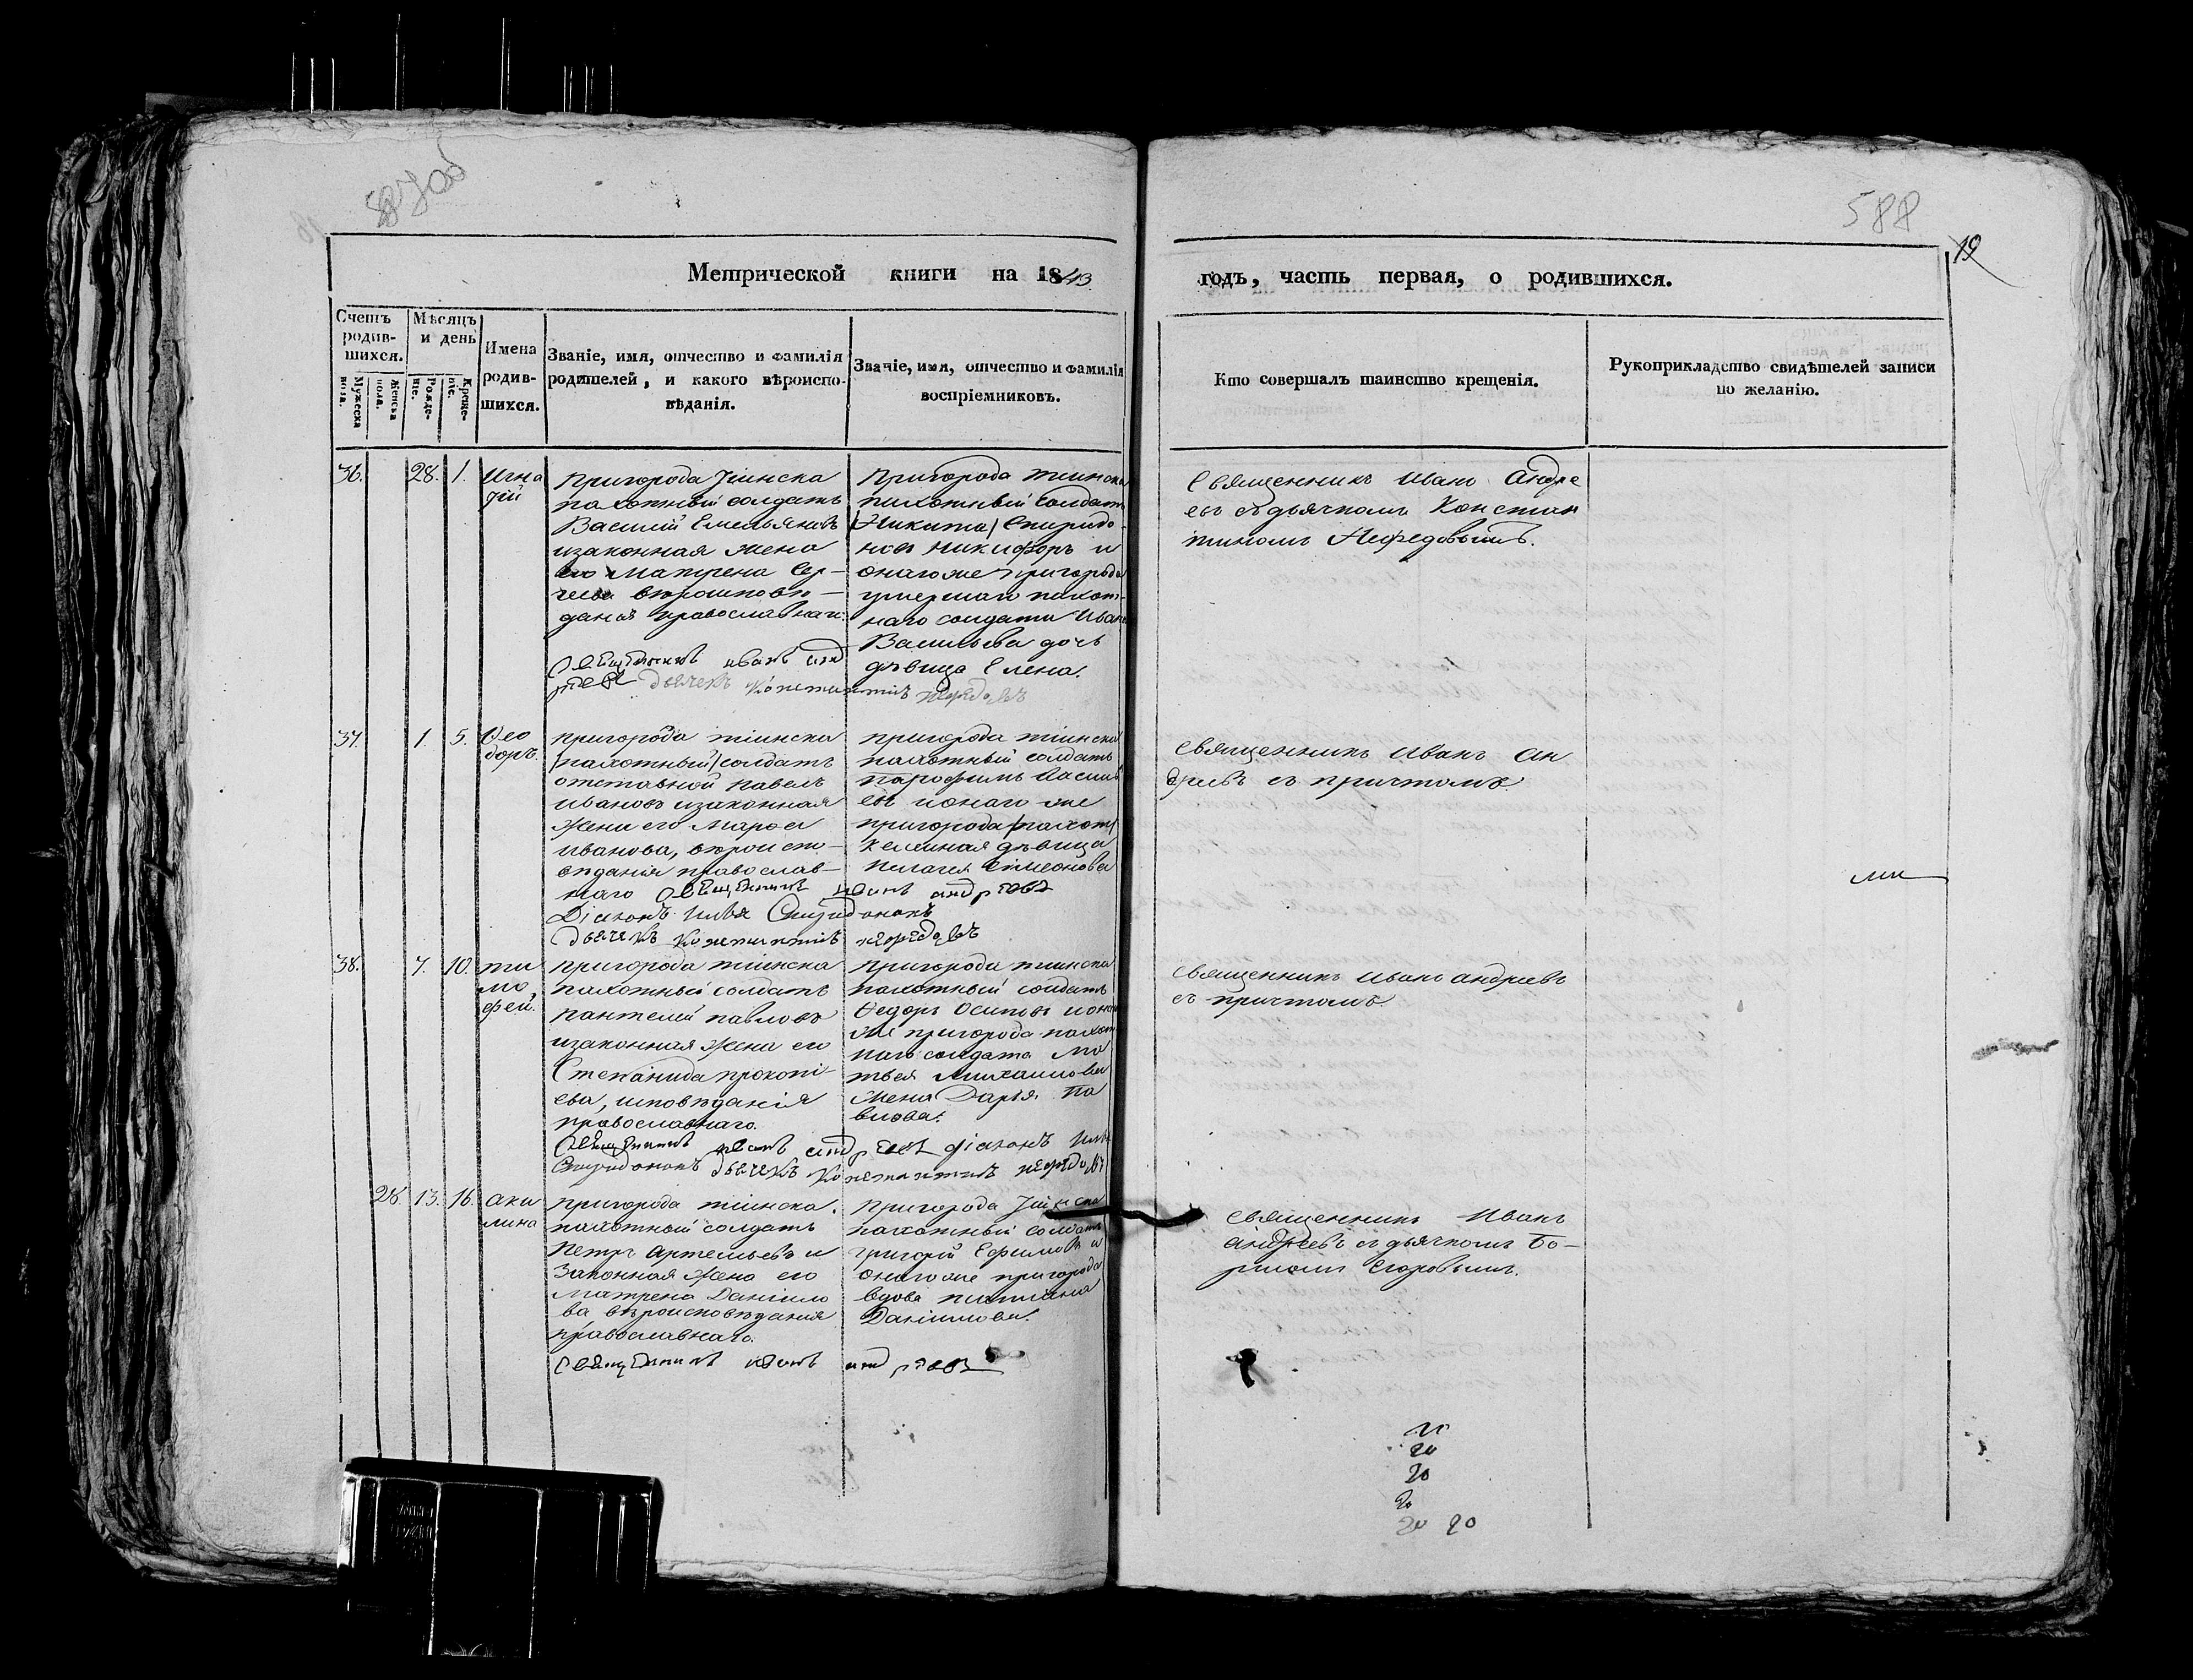 587об
588
19
Метрической книги на 1843
годъ, часть первая, о родившихся.
Счетъ родив-шихся.
Мужеска пола.
Женска пола.
Мѣсяцъ и день
Рожде-ніе.
Креще-ніе.
Имена родив-шихся.
Званіе, имя, отчество и фамилія
родителей, и какого вѣроиспо-
вѣданія.
Званіе, имя, отчество и фамилія
воспріемниковъ.
Кто совершалъ таинство крещенія.
Рукоприкладство свидѣтелей записи
по желанію.
36.
28.
1.
Игна
тій
Пригорода Тіинска
пахотный солдатъ
Василій Емельяновъ
изаконная жена
его Матрена Сер-
геева вѣроисповѣ-
данія православнаго.
Священникъ иванъ анд
реевъ дьячекъ константинъ нефедовъ
Пригорода Тіинска
пахотный солдатъ
Никита Спиридо-
новъ Никифоръ и
онагоже пригорода
умершаго пахот-
наго солдата Иван
Васильева дочь
дѣвица Елена.
Священникъ Иванъ Андре
евъ съ дьячкомъ Констан
тиномъ Нефедовымъ.
37.
1.
5.
Ѳео
доръ.
пригорода тіинска
пахотный солдатъ
отставной Павелъ
Ивановъ изаконная
жена его Марѳа
Иванова, вѣроиспо-
вѣданія православ-
наго Священникъ иванъ андреевъ
Діаконъ Илья Спиридоновъ
дьячекъ константинъ нефедовъ
пригорода тіинска
пахотный солдатъ
Василь
евъ ионаго же
пригорода пахот
келейная дѣвица
Пелагея Симеонова
священникъ Иванъ Ан
дреевъ съ причтомъ
38.
7.
10.
ти
мо
фей.
пригорода тіинска
пахотный солдатъ
Пантелей Павловъ
изаконная жена его
Степанида прокопі-
ева, исповѣданія
православнаго.
Священникъ иванъ андреевъ діаконъ Илья
Спиридоновъ дьячекъ константинъ нефедовъ
пригорода тіинска
пахотный солдатъ
Ѳедоръ Осиповъ ионаго
же пригорода пахот
наго солдата Ма
твея Михайлова
жена Дарья Па
влова.
священникъ Иванъ андреевъ
съ причтомъ
28.
13.
16.
аки
лина
пригорода тіинска.
пахотный солдатъ
Петръ Артемьевъ и
законная жена его
Матрена Данило
ва вѣроисповѣданія
православнаго.
Священникъ иванъ андреевъ
Пригорода Тіинска
пахотный солдатъ
григорій Ефимовъ и
онагоже пригорода
вдова
Данилова.
священникъ Иванъ
андреевъ съ дьячкомъ Бо-
рисомъ Егоровымъ.
20
20
20
20 20